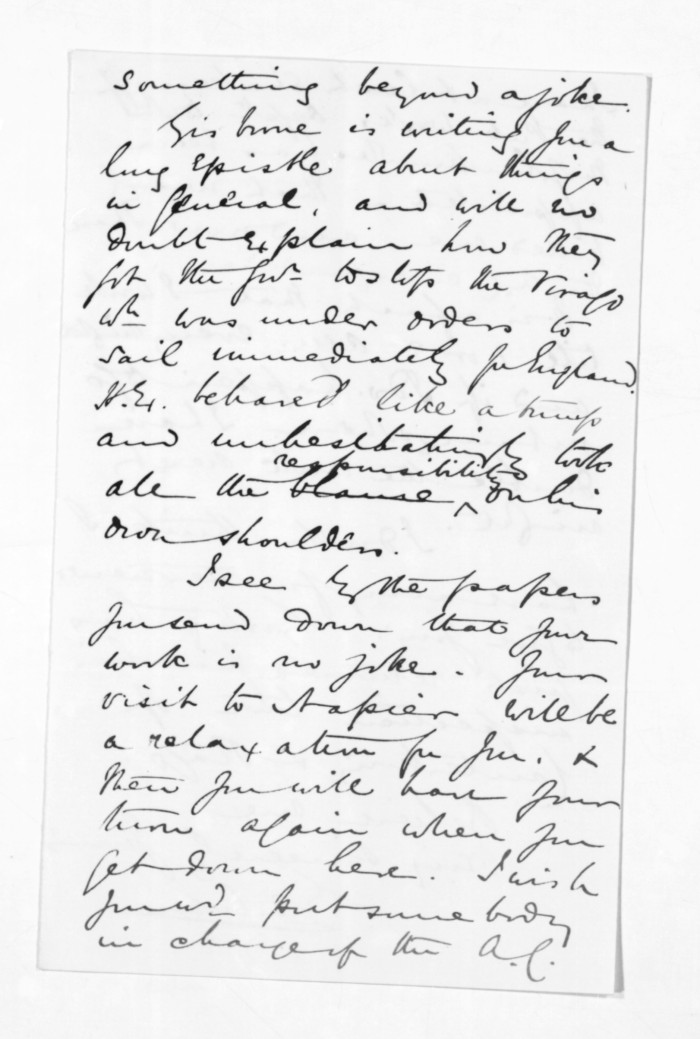 something beyond a joke.
Gisborne is writing you a
long epistle about things
in general, and will no
doubt explain how they
got the Govr. to stop the Virago
wh. was under orders to
sail immediately for England.
H.Ex. behaved like a trump
and unhesitatingly took
responsibility
all the blame ^ on his
own shoulders.
I see by the papers
you send down that your
work is no joke. Your
visit to Napier will be
a relaxation for you. &
then you will have your
turn again when you
get down here. I wish
you wd. put somebody
in charge of the A.C.